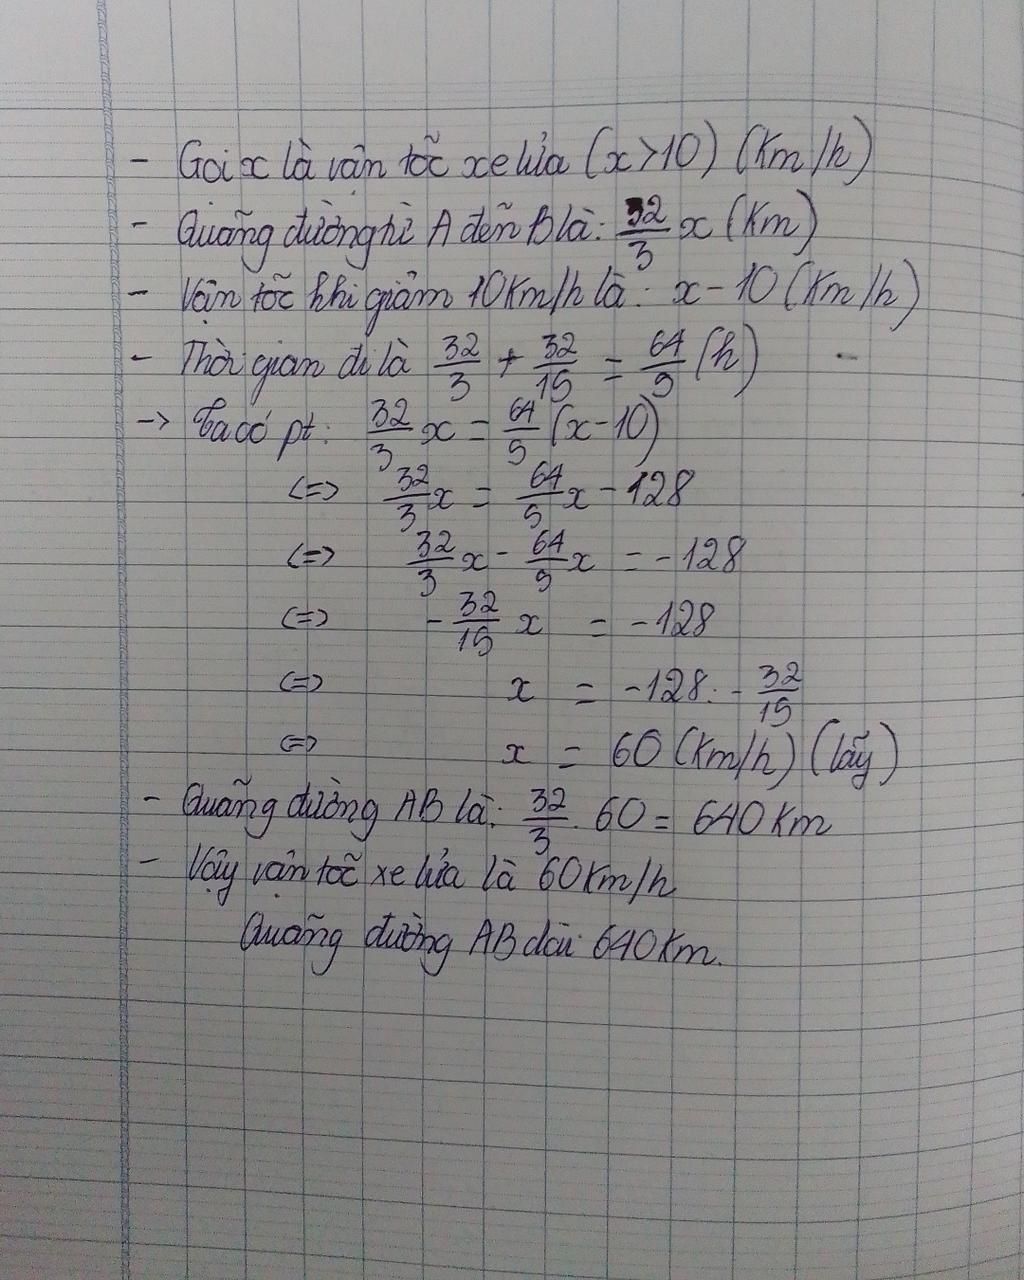 - Gọi x là vận tốc xe lửa (x>10) (Km/h)
- Quãng đường từ A đến B là: 32/3 x (Km)
- Vận tốc khi giảm 10Km/h là: x - 10 (Km/h)
- Thời gian đi là 32/3 + 32/15 = 64/5 (h)
-> Ta có pt: 32/3 x = 64/5 (x-10)
<=> 32/3 x = 64/5 x - 128
<=> 32/3 x - 64/5 x = -128
<=> - 32/15 x = -128
<=> x = -128 : - 32/15
<=> x = 60 (Km/h) (lấy)
- Quãng đường AB là: 32/3 . 60 = 640 Km
- Vậy vận tốc xe lửa là 60Km/h
Quãng đường AB dài 640Km.